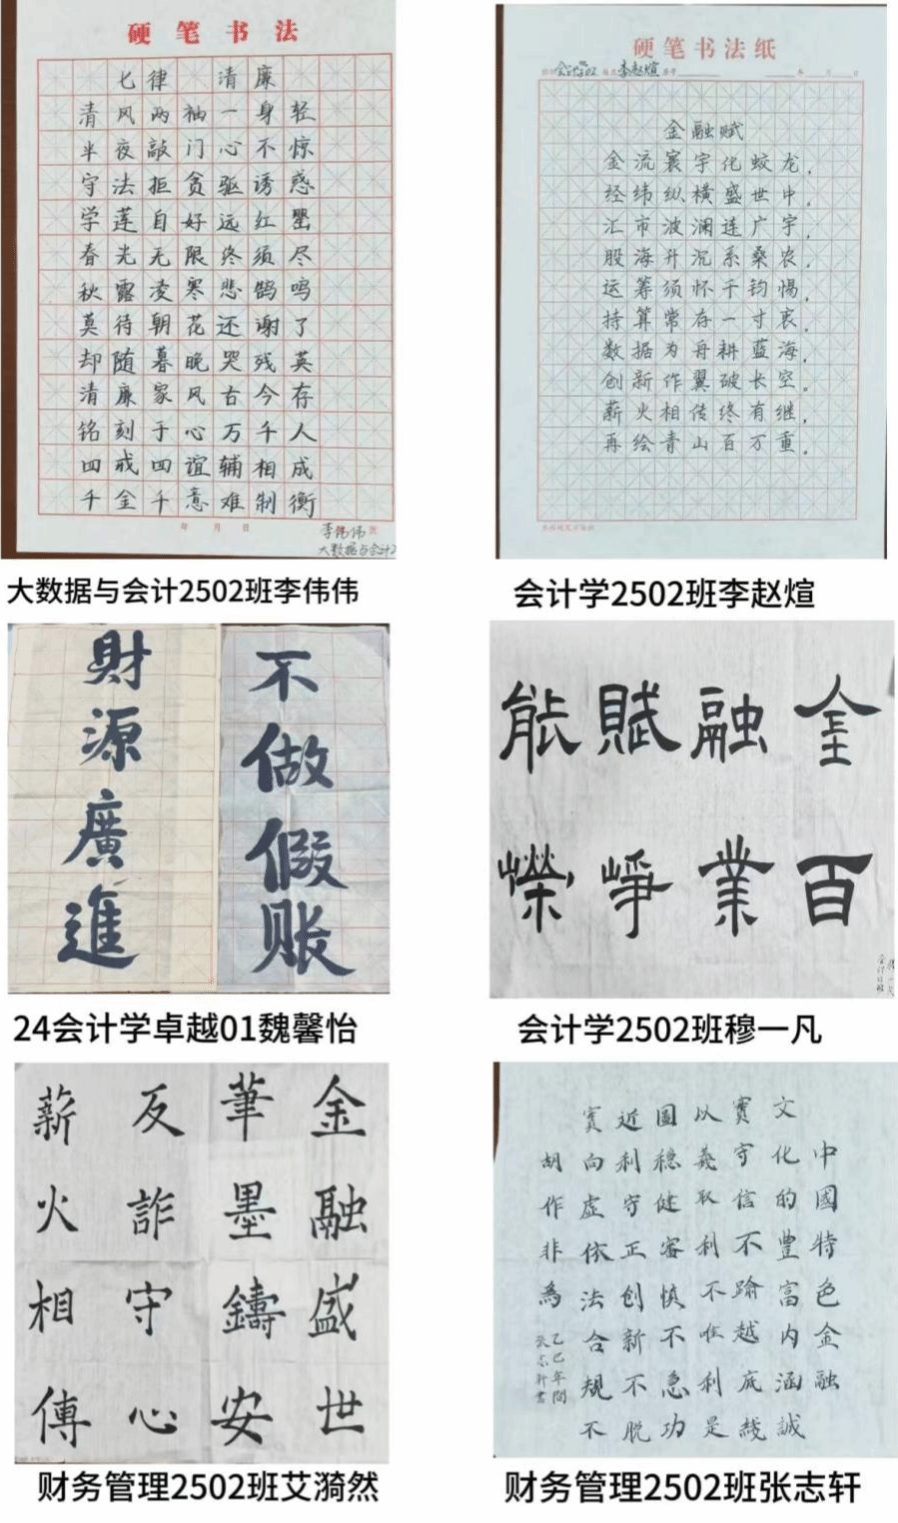 硬笔书法
七律 清廉
清风两袖一身轻
半夜敲门心不惊
守法拒贪驱诱惑
学莲自好远红罂
春光无限终须尽
秋露凌寒悲鹄鸣
莫待朝花还谢了
却随暮晚哭残英
清廉家风古今存
铭刻于心万千人
四戒四谊辅相成
千金千意难制衡
年 月 日
李伟伟
大数据与会计2
大数据与会计2502班李伟伟
硬笔书法纸
李赵煊
年 月 日
金融赋
金流寰宇化蛟龙，
经纬纵横盛世中，
汇市波澜连广宇，
股海升沉系桑农。
运筹须怀千钧惕，
持算常存一寸衷，
数据为舟耕蓝海，
创新作翼破长空。
薪火相传终有继，
再绘青山百万重。
会计学2502班李赵煊
財源廣進
不做假账
24会计学卓越01魏馨怡
金融賦能
百業崢嶸
会计学2502班穆一凡
金融盛世
筆墨鑄安
反詐守心
薪火相傳
财务管理2502班艾漪然
中國特色金融
文化的豐富内涵誠
實守信不踰越底綫
以義取利不唯利是
圖穩健審慎不急功
近利守正创新不脱
實向虚依法合規不
胡作非為
财务管理2502班张志轩